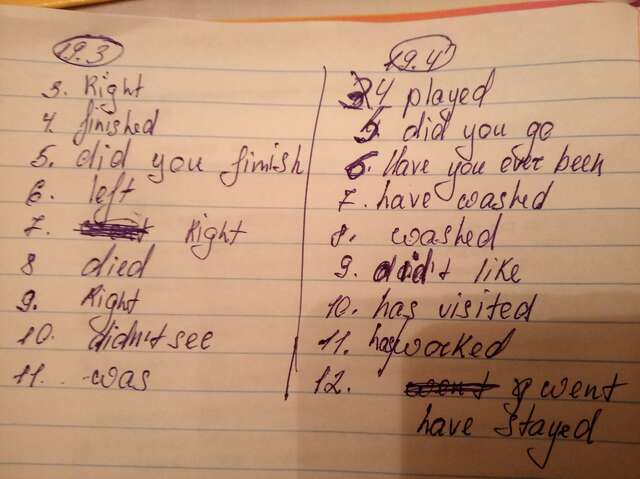 19.3
3. Right
4. finished
5. did you finish
6. left
7. Right
8 died
9. Right
10. didn't see
11. was
19.4
4 played
5 did you go
6. Have you ever been
7. have washed
8. washed
9. didn't like
10. has visited
11. has worked
12. went
have stayed